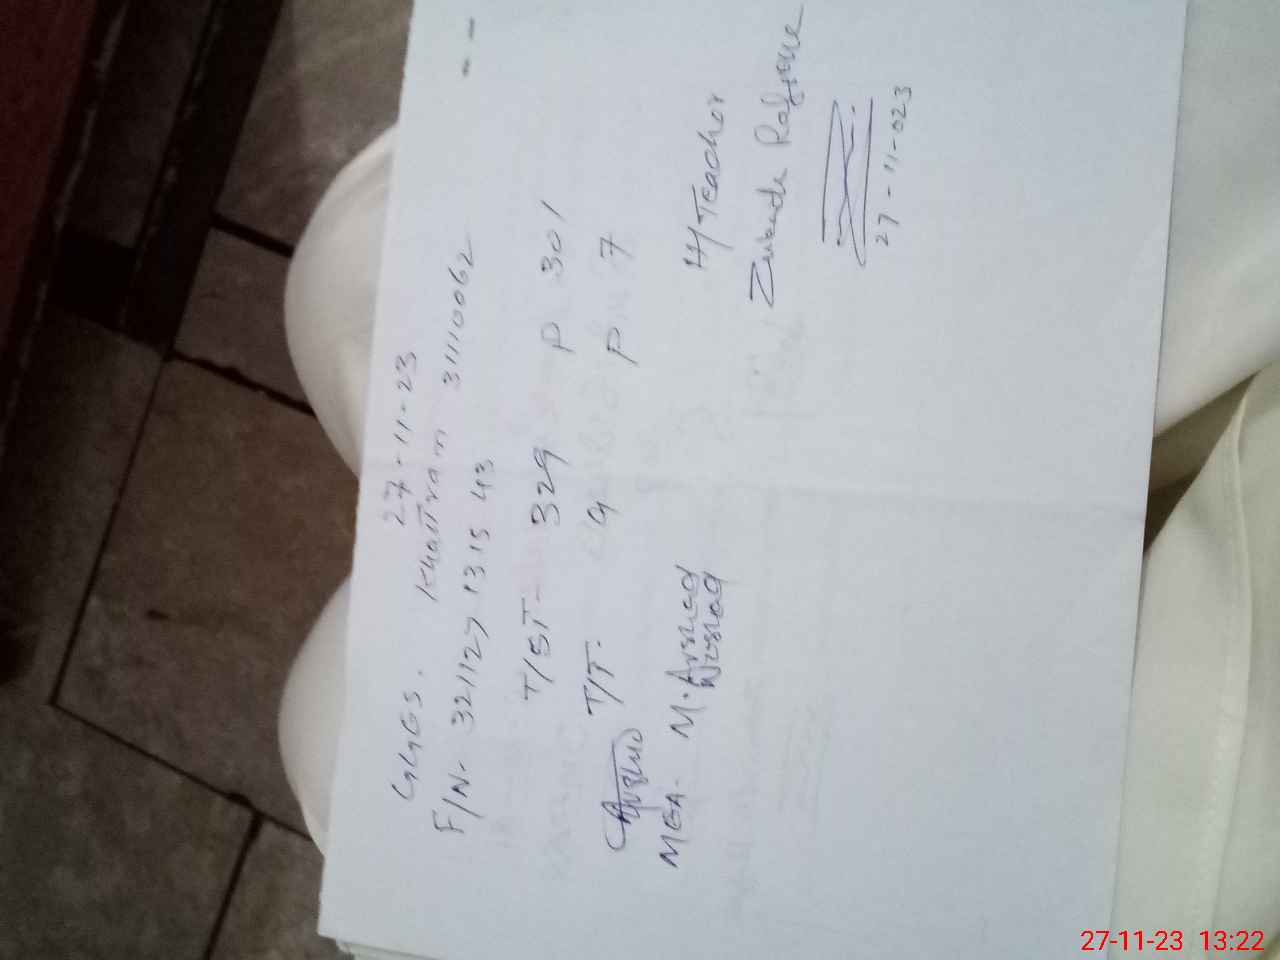 27-11-23
GGGS. Khanram 31110062
F/N- 321127 1315 43
T/ST- 329 P 301
T/T- 9 P 7
MEA. M. Arshad
H/Teacher
Zubaida
27-11-023
27-11-23 13:22